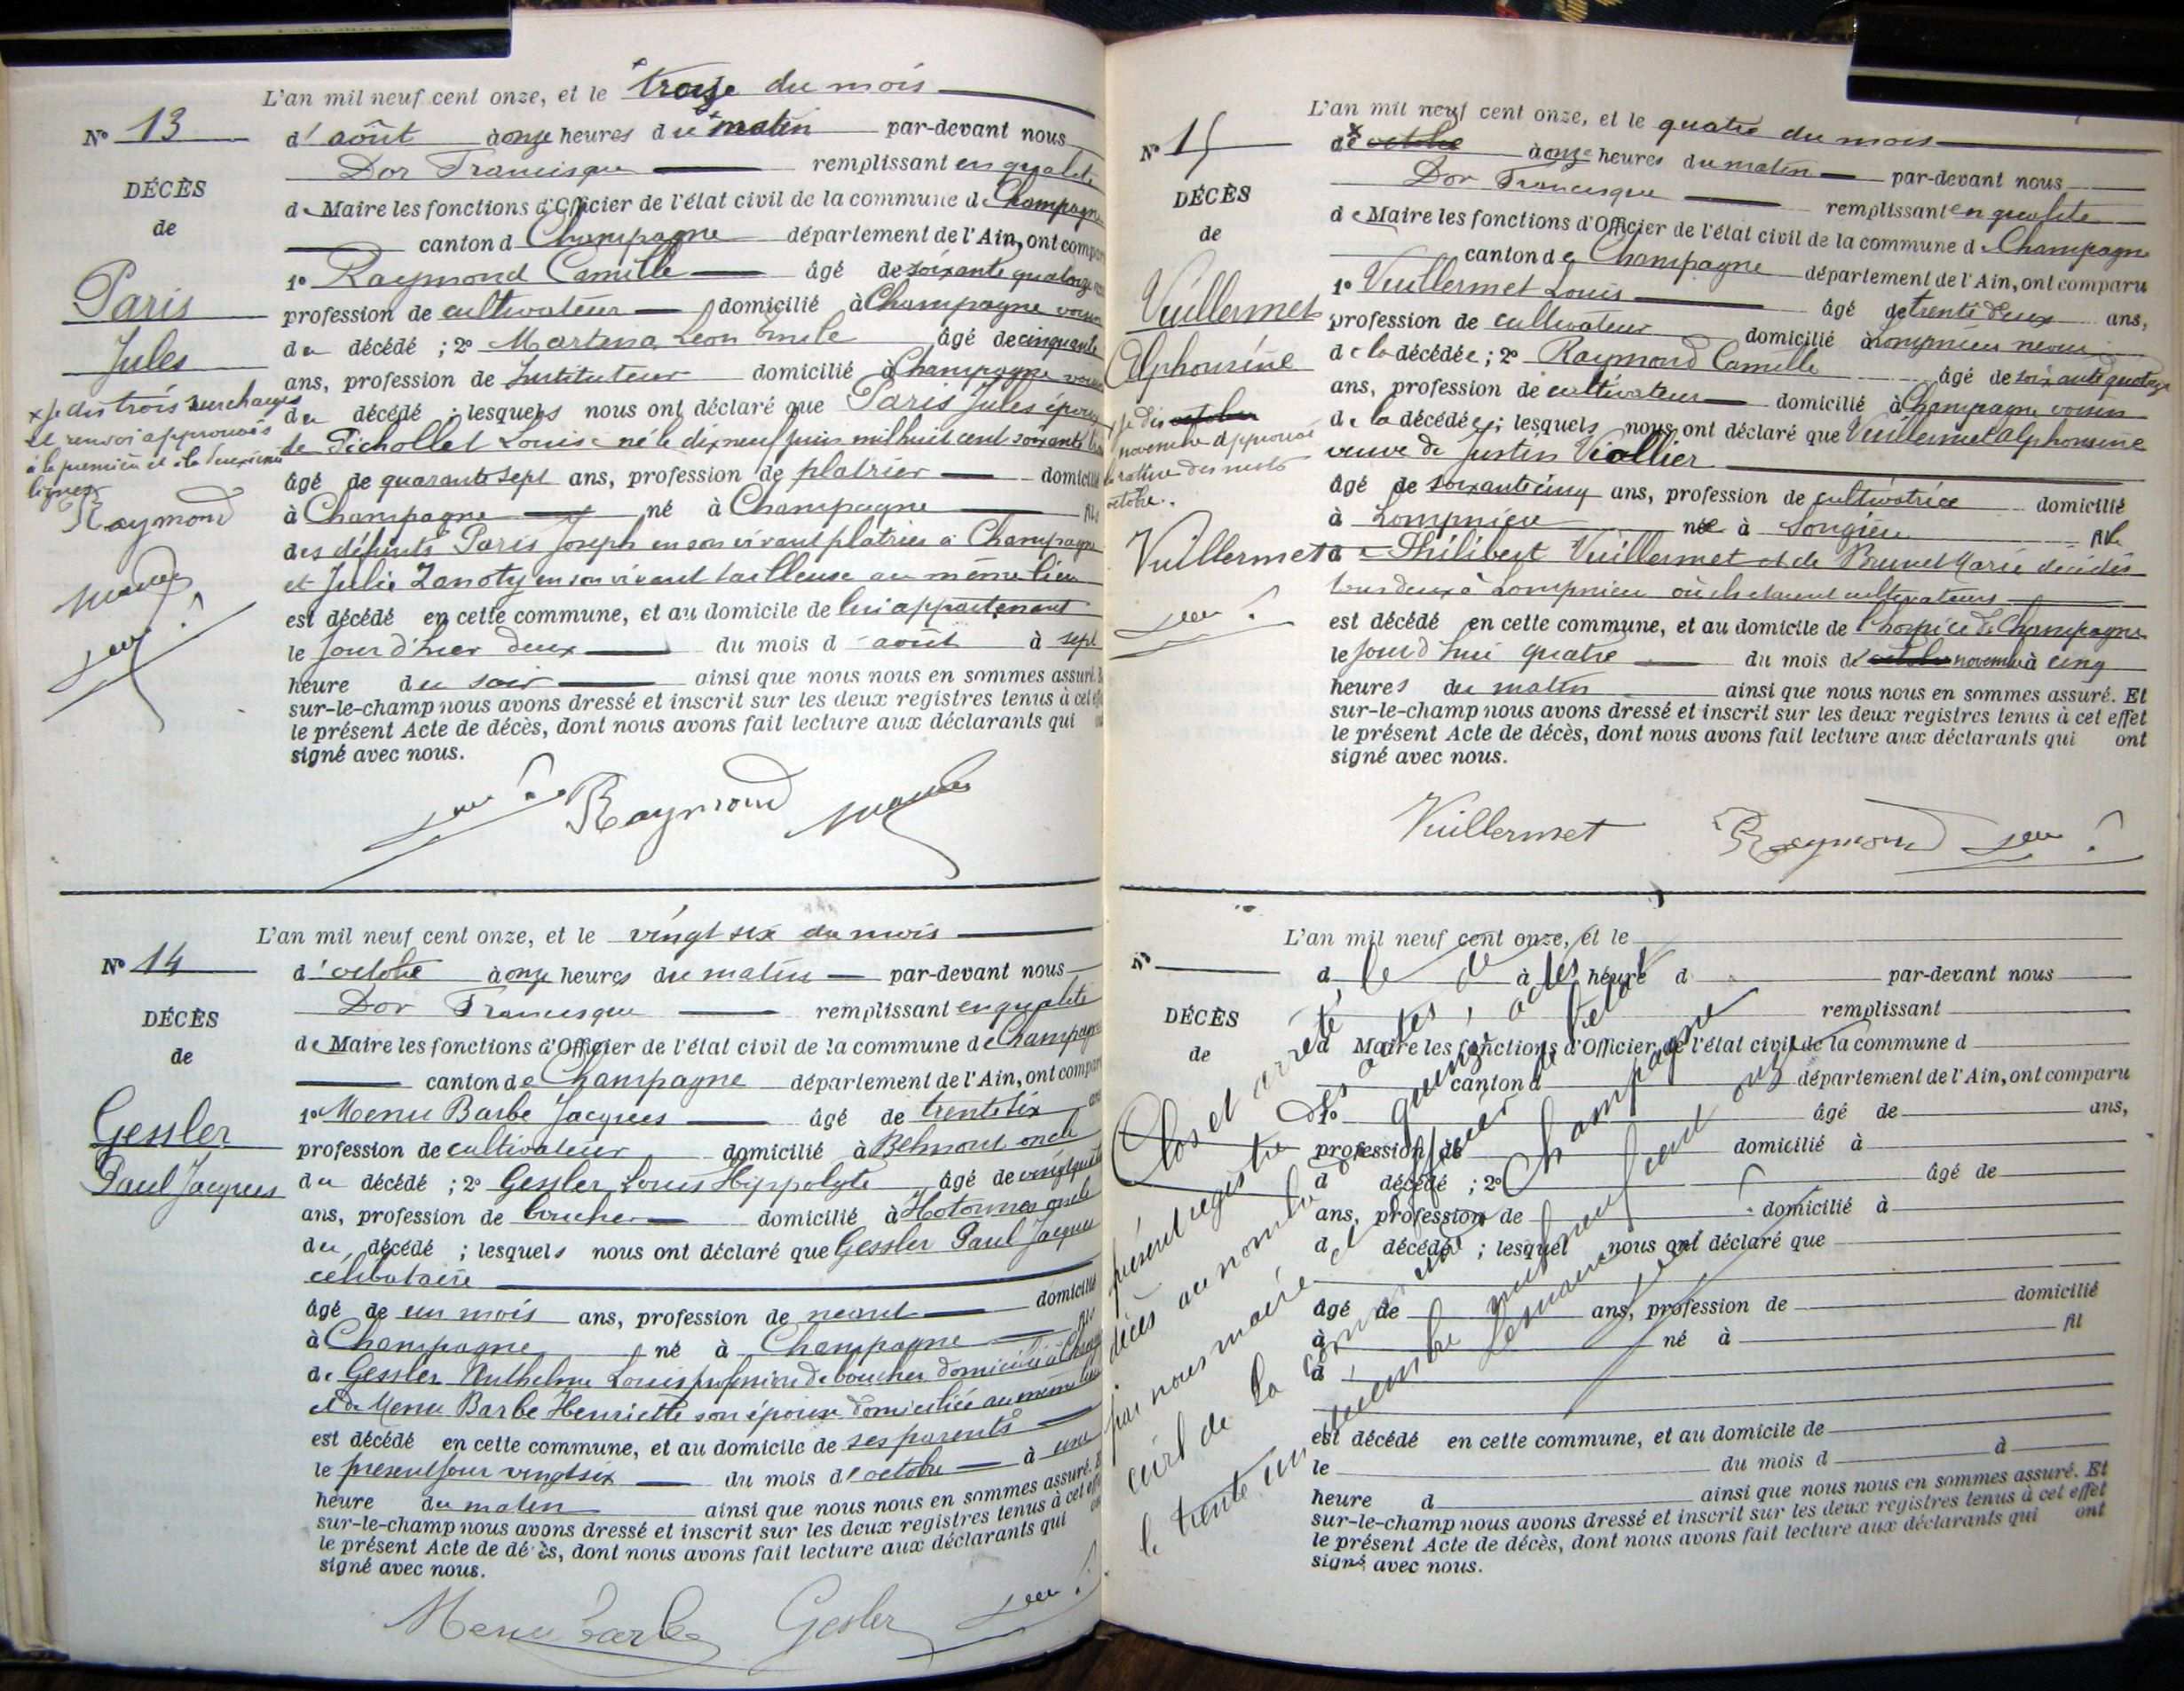 L'an mil neuf cent onze, et le trois du mois
N° 13
d'août à onze heures du matin par-devant nous
Dor Francisque remplissant en qualité
DÉCÈS
de Maire les fonctions d'Officier de l'état civil de la commune de Champagne
de
canton d Champagne département de l'Ain, ont compar
1° Raymond Camille âgé de soixante quatorze
Paris
profession de cultivateur domicilié à Champagne voisin
Jules
du décédé ; 2° Martina Léon Emile âgé de cinquante
ans, profession de Instituteur domicilié à Champagne voisin
x Je dis trois surcharges
et renvoi approuvés
à la première et à la deuxième
lignes
Raymond
du décédé ; lesquels nous ont déclaré que Paris Jules époux
de Pichollet Louise né le dix neuf juin mil huit cent soixante
âgé de quarante sept ans, profession de platrier domicilié
à Champagne né à Champagne fils
des défunts Paris Joseph en son vivant platrier à Champagne
et Julie Zanoty en son vivant tailleuse au même lieu
est décédé en cette commune, et au domicile de lui appartenant
le jour d'hier deux du mois d'août à sept
heure du soir ainsi que nous nous en sommes assuré. E
sur-le-champ nous avons dressé et inscrit sur les deux registres tenus à cet eff
le présent Acte de décès, dont nous avons fait lecture aux déclarants qui
signé avec nous.
Raymond
L'an mil neuf cent onze, et le vingt six du mois
N° 14
d'octobre à onze heures du matin par-devant nous
Dor Francisque remplissant en qualité
DÉCÈS
de Maire les fonctions d'Officier de l'état civil de la commune de Champagne
de
canton de Champagne département de l'Ain, ont compar
1° Menu Barbe Jacques âgé de trente six ans
Gessler
profession de cultivateur domicilié à Belmont oncle
Paul Jacques
du décédé ; 2° Gessler Louis Hippolyte âgé de vingt quatre
ans, profession de boucher domicilié à Hotonnes oncle
du décédé ; lesquels nous ont déclaré que Gessler Paul Jacques
célibataire
âgé de un mois ans, profession de néant domicilié
à Champagne né à Champagne fils
de Gessler Anthelme Louis profession de boucher domicilié à Champ
et de Menu Barbe Henriette son épouse domiciliée au même lieu
est décédé en cette commune, et au domicile de ses parents
le présent jour vingt six du mois d'octobre à une
heure du matin ainsi que nous nous en sommes assuré. E
sur-le-champ nous avons dressé et inscrit sur les deux registres tenus à cet eff
le présent Acte de décès, dont nous avons fait lecture aux déclarants qui
signé avec nous.
Menu Barbe Gesler
L'an mil neuf cent onze, et le quatre du mois
N° 15
de octobre à onze heures du matin par-devant nous
Dor Francisque remplissant en qualité
DÉCÈS
de Maire les fonctions d'Officier de l'état civil de la commune de Champagne
de
canton de Champagne département de l'Ain, ont comparu
1° Vuillermet Louis âgé de trente deux ans,
Vuillermet
profession de cultivateur domicilié à Lompnieu neveu
Alphonsine
de la décédée ; 2° Raymond Camille âgé de soixante quatorze
ans, profession de cultivateur domicilié à Champagne voisin
x Je dis octobre
novembre approuvé
la rature du mot
octobre.
de la décédée ; lesquels nous ont déclaré que Vuillermet Alphonsine
veuve de Justin Viollier
âgé de soixante cinq ans, profession de cultivatrice domicilié
à Lompnieu née à Songieu fille
Vuillermet
de Philibert Vuillermet et de Brunet Marie décédés
tous deux à Lompnieu où ils étaient cultivateurs
est décédé en cette commune, et au domicile de l'hospice de Champagne
le jourd'hui quatre du mois de octobre novembre à cinq
heures du matin ainsi que nous nous en sommes assuré. Et
sur-le-champ nous avons dressé et inscrit sur les deux registres tenus à cet effet
le présent Acte de décès, dont nous avons fait lecture aux déclarants qui ont
signé avec nous.
Vuillermet Raymond
L'an mil neuf cent onze, et le
N°
d à heure d par-devant nous
remplissant
DÉCÈS
d Maire les fonctions d'Officier de l'état civil de la commune d
de
canton d département de l'Ain, ont comparu
1° âgé de ans,
profession de domicilié à
d décédé ; 2° âgé de
ans, profession de domicilié à
d décédé ; lesquel nous ont déclaré que
âgé de ans, profession de domicilié
à né à fil
d
est décédé en cette commune, et au domicile de
le du mois d à
heure d ainsi que nous nous en sommes assuré. Et
sur-le-champ nous avons dressé et inscrit sur les deux registres tenus à cet effet
le présent Acte de décès, dont nous avons fait lecture aux déclarants qui ont
signé avec nous.
Clos et arrêté, le
présent registre des actes de
décès au nombre de quinze actes,
par nous maire et officier de l'état
civil de la commune de Champagne
le trente un décembre mil neuf cent onze
Le maire